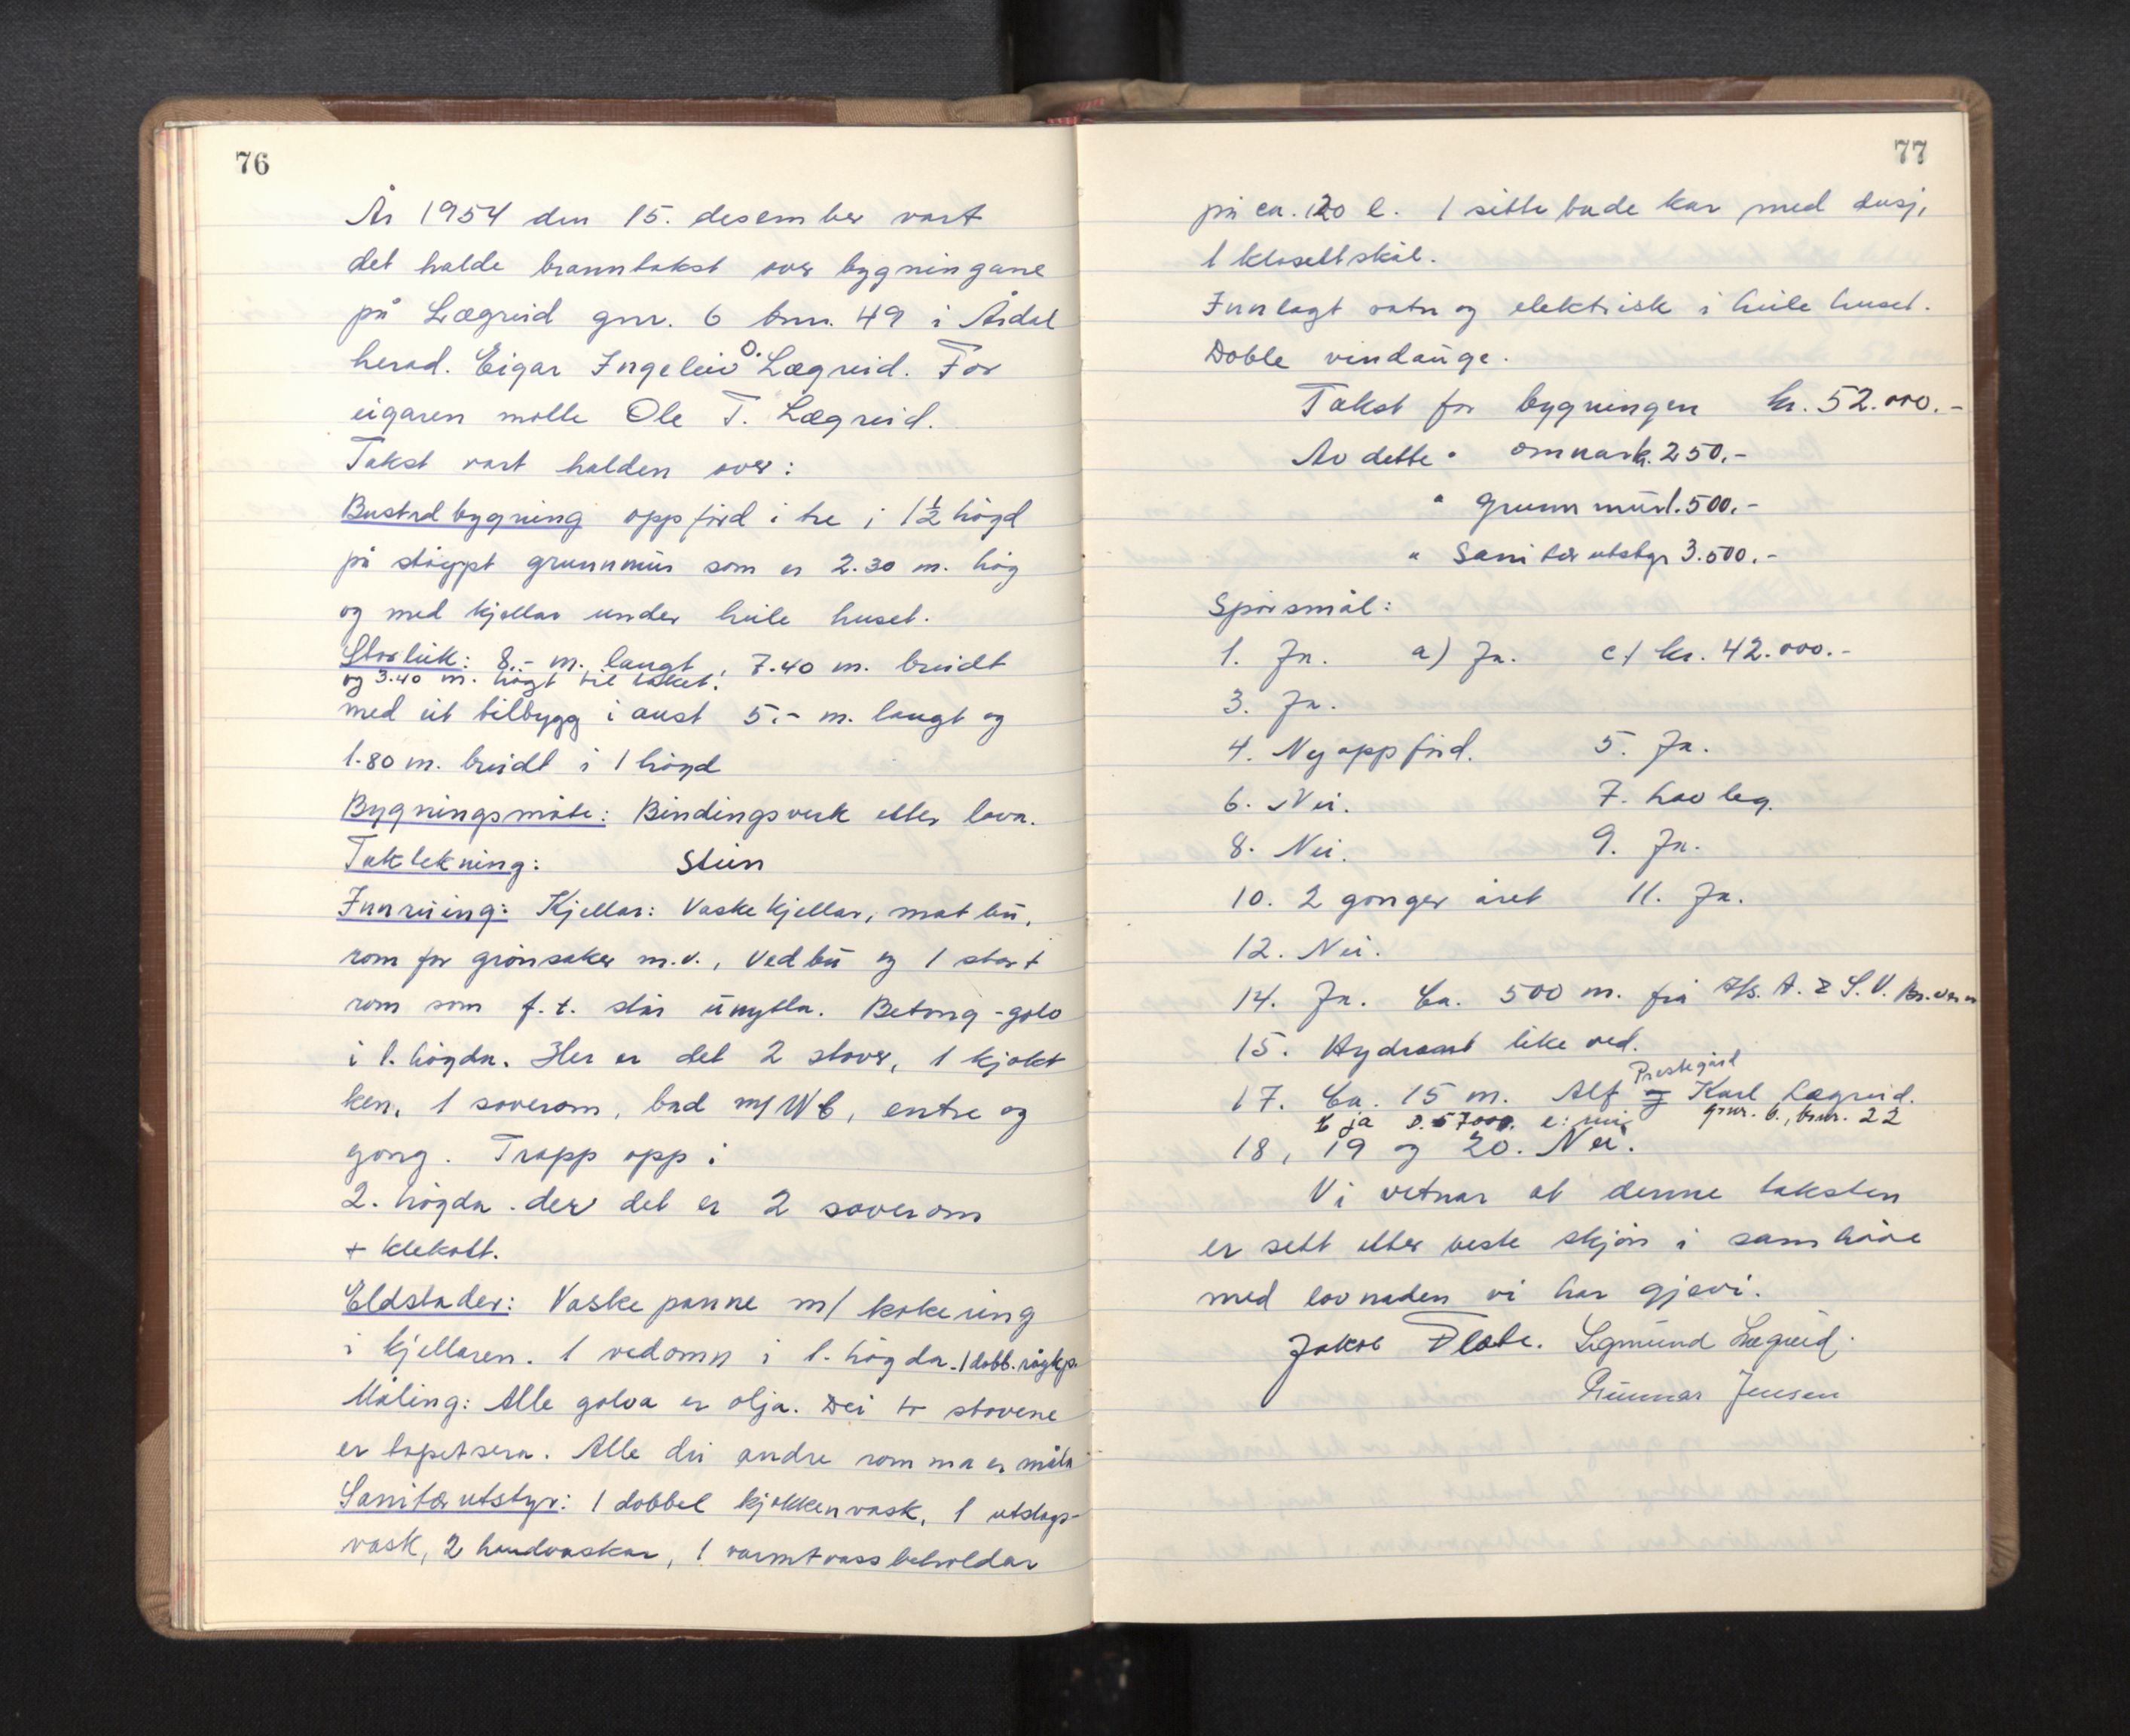 76
År 1954 den 15. desember vart
det halde branntakst over bygningane
på Lægreid gnr. 6 bnr. 49 i Årdal
herad. Eigar Ingeleiv O. Lægreid. For
eigaren møtte Ole T. Lægreid.
Takst vart halden over:
Bustad bygning oppförd i tre i 1½ högd
på stöypt grunnmur som er 2.30 m. hög
og med kjellar under heile huset.
Storleik: 8.- m. langt, 7.40 m. breidt
og 3.40 m. högt til taket.
med eit tilbygg i aust 5.- m. langt og
1.80 m. breidt i 1 högd
Bygningsmåte: Bindingsverk etter lova.
Taktekning: Stein
Innreiing: Kjellar: Vaskekjellar, matbu,
rom for grönsaker m.v., Vedbu og 1 stort
rom som f.t. står unytta. Betong-golv
i 1. högda. Her er det 2 stover, 1 kjøkt
ken, 1 soverom, bad m/ WC, entre og
gong. Trapp opp i
2. högda. der det er 2 soverom
+ klekott.
Eldstader: Vaskepanne m/ kokering
i kjellaren. 1 vedomn i 1. högda. 1 dobb. röykp.
Måling: Alle golva er olja. Dei to stovene
er tapetsera. Alle dei andre romma er måla
Sanitærutstyr: 1 dobbel kjøkkenvask, 1 utslags-
vask, 2 handvaskar, 1 varmtvassbeholdar
77
på ca. 120 l. 1 sitte bade kar med dusj,
1 klosettskål.
Innlagt vatn og elektrisk i heile huset.
Doble vindauge.
Takst for bygningen kr. 52.000.-
Av dette " omnar k. 250.-
" Grunn mur k. 500.-
" Sanitær utstyr 3.500.-
Spörsmål:
1. Ja. a) Ja. c) kr. 42.000.-
3. Ja.
4. Ny oppförd. 5. Ja.
6. Nei. 7. Lovleg.
8. Nei. 9. Ja.
10. 2 gonger året 11. Ja.
12. Nei.
14. Ja. Ca. 500 m. frå A/s. Å. & S. V. Br. vern
15. Hydrant like ved.
Prestegård
17. Ca. 15 m. Alf og Karl Lægreid.
b ja D. 57000. e: nei gnr. 6., bnr. 22
18, 19 og 20. Nei.
Vi vitnar at denne taksten
er sett etter beste skjön i samhöve
med lovnaden vi har gjevi.
Jakob Sigmund Lægreid.
Gunnar Jensen